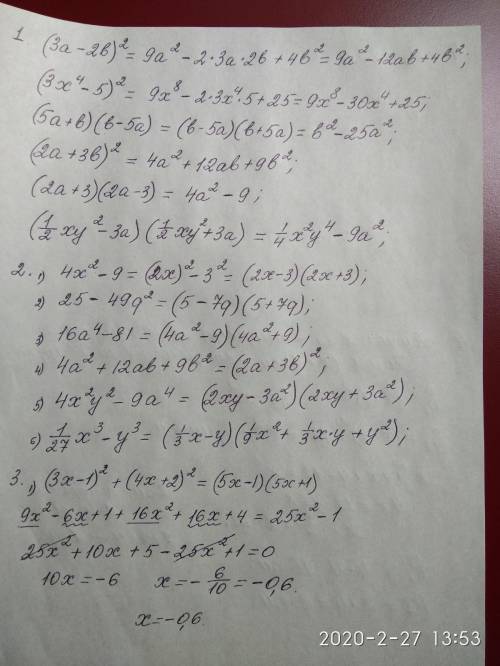 1 (3a-2b)² = 9a² - 2·3a·2b + 4b² = 9a² - 12ab + 4b²;
(3x⁴-5)² = 9x⁸ - 2·3x⁴·5 + 25 = 9x⁸ - 30x⁴ + 25;
(5a+b)(b-5a) = (b-5a)(b+5a) = b² - 25a²;
(2a+3b)² = 4a² + 12ab + 9b²;
(2a+3)(2a-3) = 4a² - 9;
(1/2 xy² - 3a)(1/2 xy² + 3a) = 1/4 x²y⁴ - 9a²;
2. 1) 4x² - 9 = (2x)² - 3² = (2x-3)(2x+3);
2) 25 - 49q² = (5-7q)(5+7q);
3) 16a⁴ - 81 = (4a²-9)(4a²+9);
4) 4a² + 12ab + 9b² = (2a+3b)²;
5) 4x²y² - 9a⁴ = (2xy-3a²)(2xy+3a²);
6) 1/27 x³ - y³ = (1/3 x - y)(1/9 x² + 1/3 x·y + y²);
3. 1) (3x-1)² + (4x+2)² = (5x-1)(5x+1)
9x² - 6x + 1 + 16x² + 16x + 4 = 25x² - 1
25x² + 10x + 5 - 25x² + 1 = 0
10x = -6 x = - 6/10 = -0,6.
x = -0,6.
2020-2-27 13:53